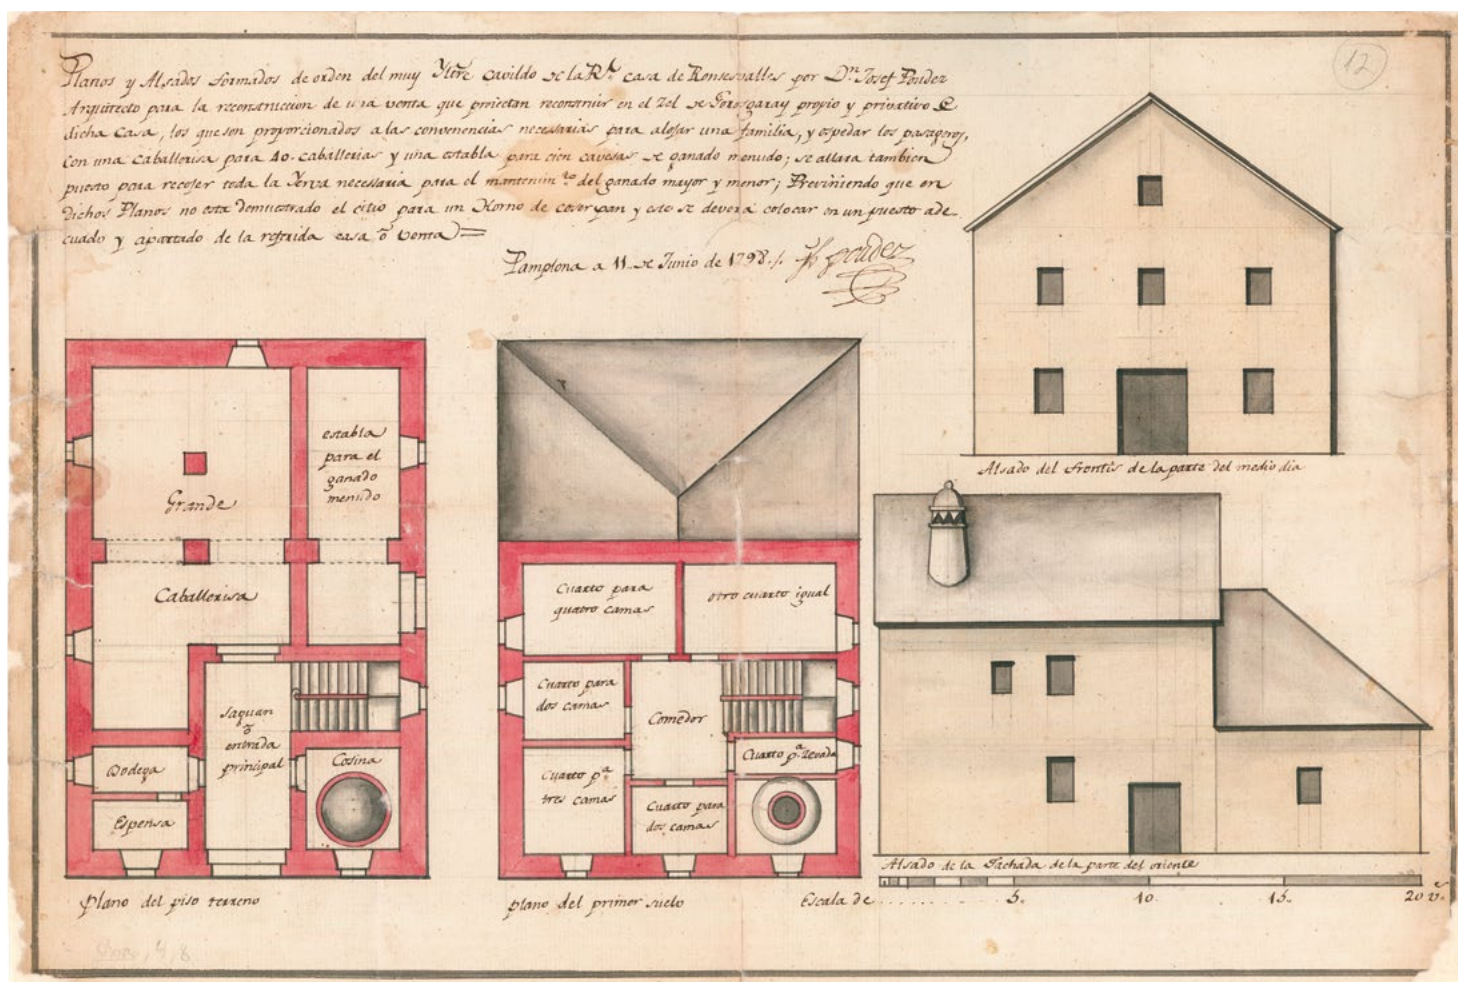 Planos y Alsados formados de orden del muy Yltre Cavildo de la Rl. casa de Ronsesvalles por Dn. Josef Poudez
Arquitecto para la reconstruccion de una venta que proiectan reconstruir en el Zel de Gorosgaray propio y privativo de
dicha Casa, los que son proporcionados a las convenencias necessarias para alojar una familia, y ospedar los pasageros,
con una caballerisa para 40. caballerias y una establa para cien cavesas de ganado menudo; se allara tambien
puesto para recojer toda la Yerva necessaria para el mantenimto. del ganado mayor y menor; Previniendo que en
dichos Planos no esta demustrado el citio para un Horno de coser pan y este se devera colocar en un puesto ade-
cuado y apartado de la referida casa ò venta =
Pamplona a 11 de Junio de 1798./. Jph poudez
12
Alsado del frontis de la parte del medio dia
establa
para el
ganado
menudo
Grande
Caballerisa
saquan
ò
entrada
principal
Bodega
Cosina
Espensa
Plano del piso terreno
Cuarto para
quatro camas
otro cuarto igual
Cuarto para
dos camas
Comedor
Cuarto pa. zevada
Cuarto pa.
tres camas
Cuarto para
dos camas
plano del primer suelo
Alsado de la Fachada de la parte del oriente
Escala de 5. 10. 15. 20 v.